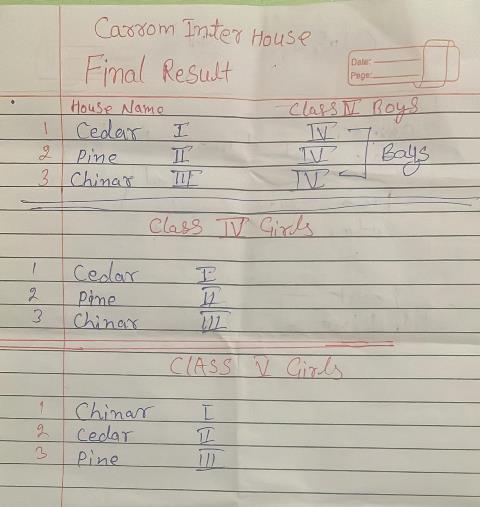 Carrom Inter House
Final Result
Date:
Page:
House Name Class IV Boys
1 Cedar I IV
2 Pine II IV Boys
3 Chinar III IV
Class IV Girls
1 Cedar I
2 Pine II
3 Chinar III
ClASS V Girls
1 Chinar I
2 Cedar II
3 Pine III